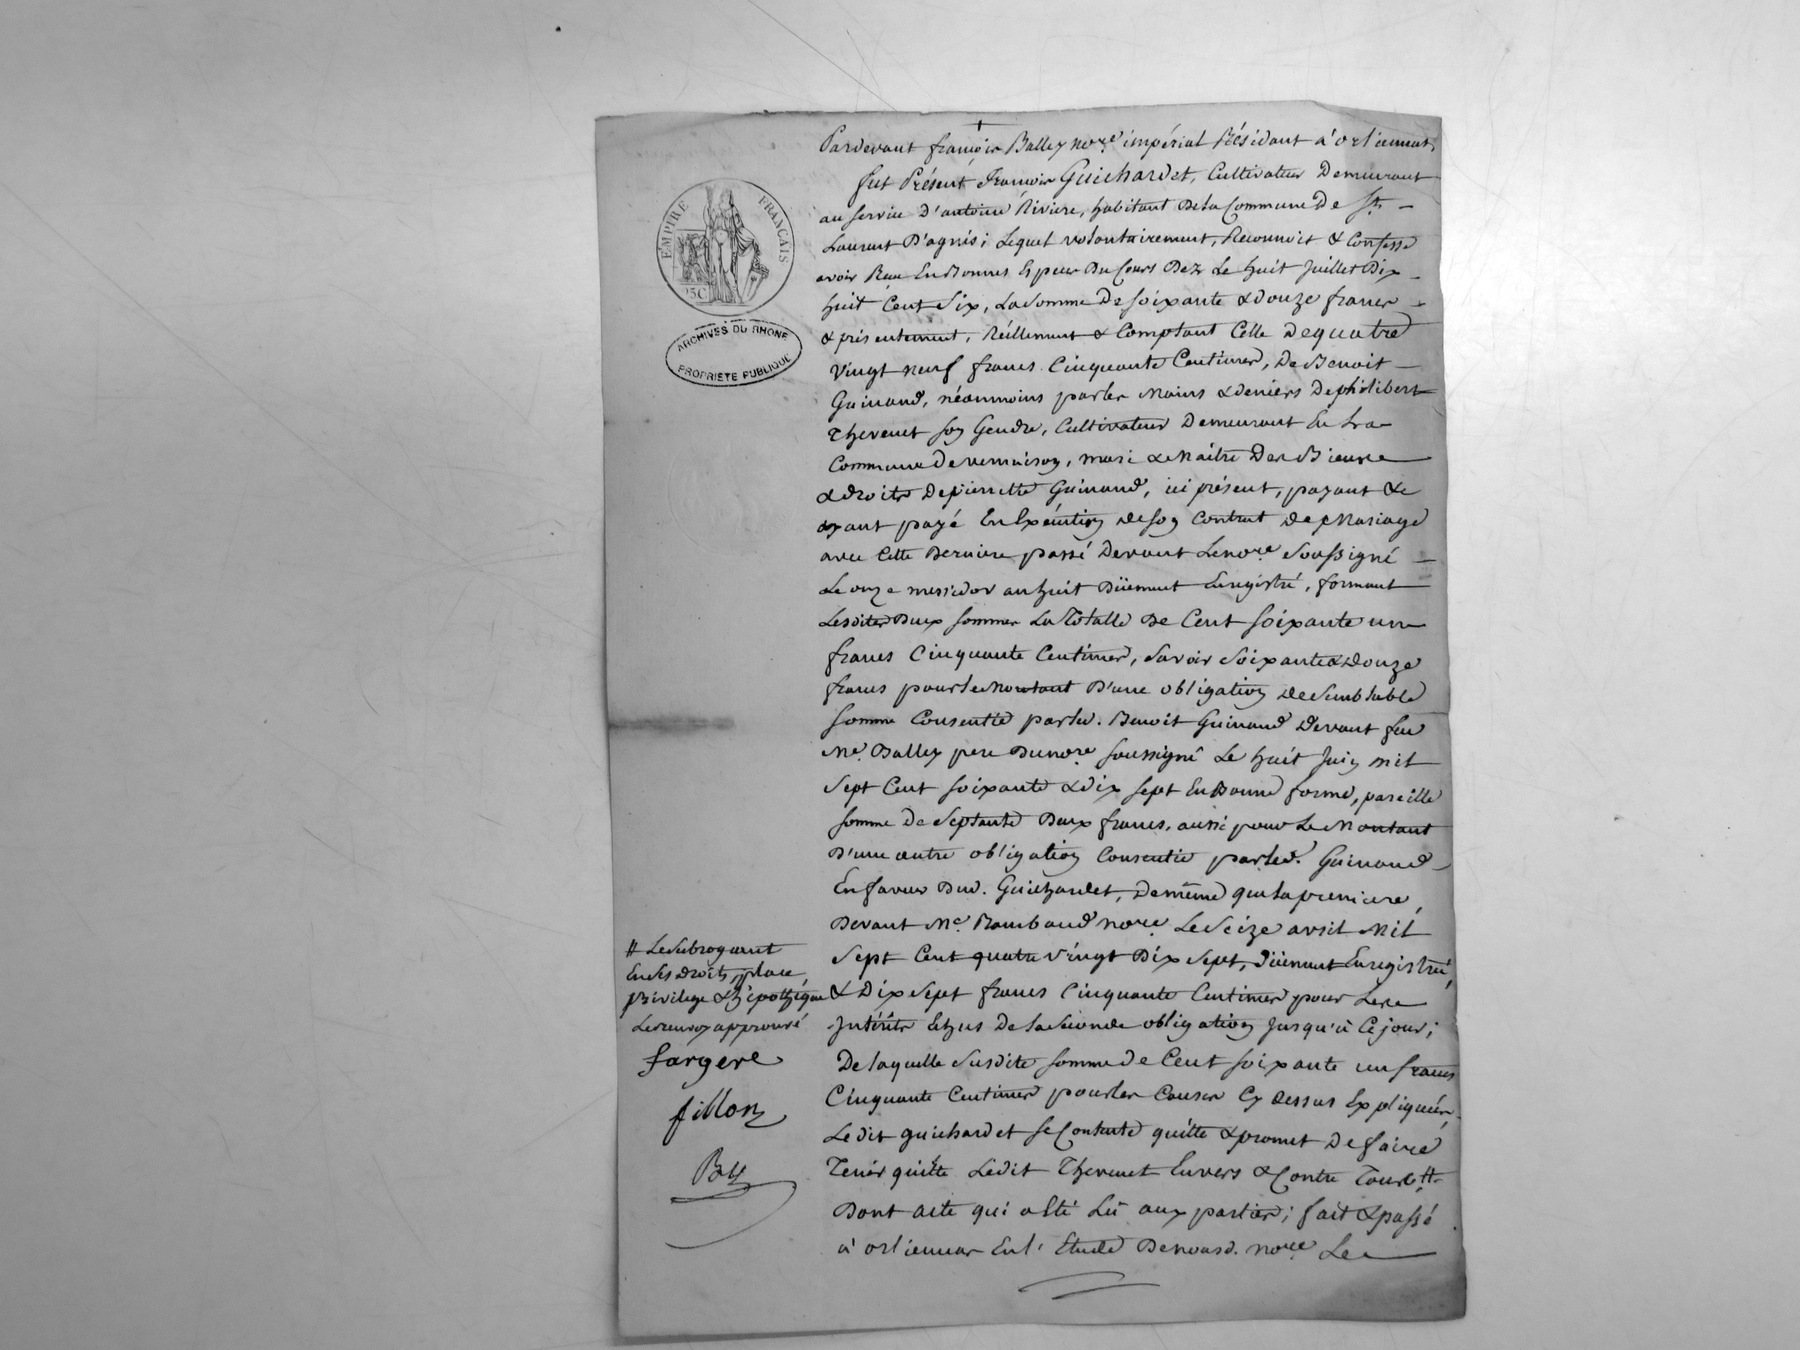 Pardevant françois Balley no.re impérial Résidant à orliennas,
fut Présent, François Guichardet, Cultivateur Demeurant
au service D'antoine Riviere, habitant De la Commune De St. —
Laurent D'agnis; Lequel volontairement, Reconnoit & Confesse
avoir Reçu En Bonnes Espèces Du Cours Dez Le huit Juillet Dix
huit Cent Six, La Somme De Soixante & douze francs —
& présentement, Réellement & Comptant Celle De quatre
vingt neuf francs Cinquante Centimes, De Benoit —
Guinand, néanmoins par les Mains & deniers De philibert
Thevenet son Gendre, Cultivateur Demeurant En La
Commune De vernaison, mari & Maître Des Biens
& droits De pierrette Guinand, ici présent, payant &
ayant payé En Exécution de son Contrat De Mariage
avec Cette Derniere passé Devant Le no.re Soussigné —
Le onze messidor an huit Düement Enregistré, formant
Lesdites Deux sommes La Totalle De Cent soixante un
francs Cinquante Centimes, Savoir Soixante & Douze
francs pour Le Montant D'une obligation de Semblable
somme Consentie par led. Benoit Guinand Devant feu
Me. Balley pere Du no.re soussigné Le huit Juin mil
Sept Cent soixante & dix sept En Bonne forme, pareille
somme De Septante Deux francs, aussi pour Le Montant
D'une autre obligation Consentie par led. Guinand
En faveur Dud. Guichardet, De même que La premiere,
Devant Me. Rambaud no.re Le Seize avril Mil
Sept Cent quatre vingt Dix Sept, Düement Enregistrée,
& Dix Sept francs Cinquante Centimes pour Les
Intérêts Echus De La Seconde obligation Jusqu'à Ce jour;
De laquelle Susdite Somme De Cent soixante un francs
Cinquante Centimes pour les Causes Cy Dessus Expliquées,
Le dit guichardet se Contente quitte & promet De faire
Tenir quitte Ledit Thevenet Envers & Contre Tous #
Dont acte qui a été Lû aux parties; fait & passé
à orliennas En l'Etude De nousd. no.re Le
EMPIRE FRANÇAIS
25C
ARCHIVES DU RHONE
PROPRIETE PUBLIQUE
# Le Subrogeant
En Ses droits, place,
privilege & hipothèque
Le renvoy approuvé
fargere
fillon
By